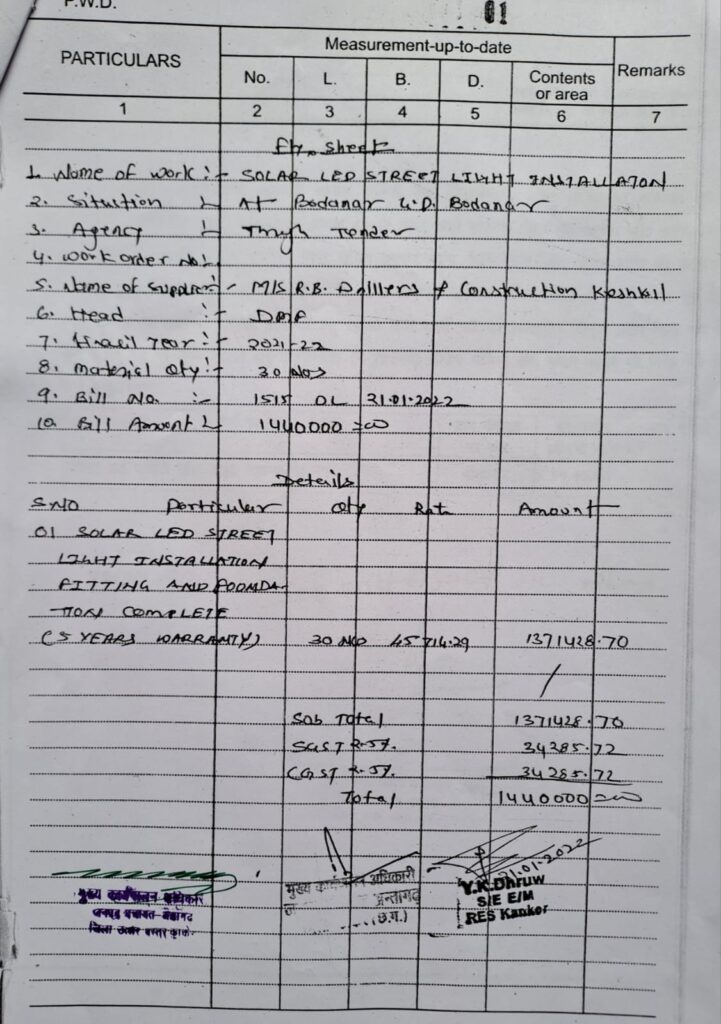 P.W.D.
01
PARTICULARS
Measurement-up-to-date
Remarks
No. L. B. D. Contents or area
1 2 3 4 5 6 7
sheet
1. Name of work :- SOLAR LED STREET LIGHT INSTALLATION
2. Situation :- At Bodanar G.P. Bodanar
3. Agency :- Tender
4. Work order No :-
5. Name of Supplier :- M/S R.B. Drillers & Construction
6. Head :- DMF
7. Year :- 2021-22
8. Material Qty :- 30 Nos
9. Bill No. :- 1515 DL 31.01.2022
10. Bill Amount :- 1440000=00
Details
SNO Particular Qty Rate Amount
01 SOLAR LED STREET
LIGHT INSTALLATION
FITTING AND FOUNDA-
TION COMPLETE
(5 YEARS WARRANTY) 30 NO 45714.29 1371428.70
Sub Total 1371428.70
SGST 2.5% 34285.72
CGST 2.5% 34285.72
Total 1440000=00
31.01.2022
मुख्य कार्यपालन अधिकारी
जनपद पंचायत-अंतागढ़
जिला उत्तर बस्तर कांकेर
मुख्य कार्यपालन अधिकारी
अन्तागढ़
(छ.ग.)
Y.K.Dhruw
S/E E/M
RES Kanker